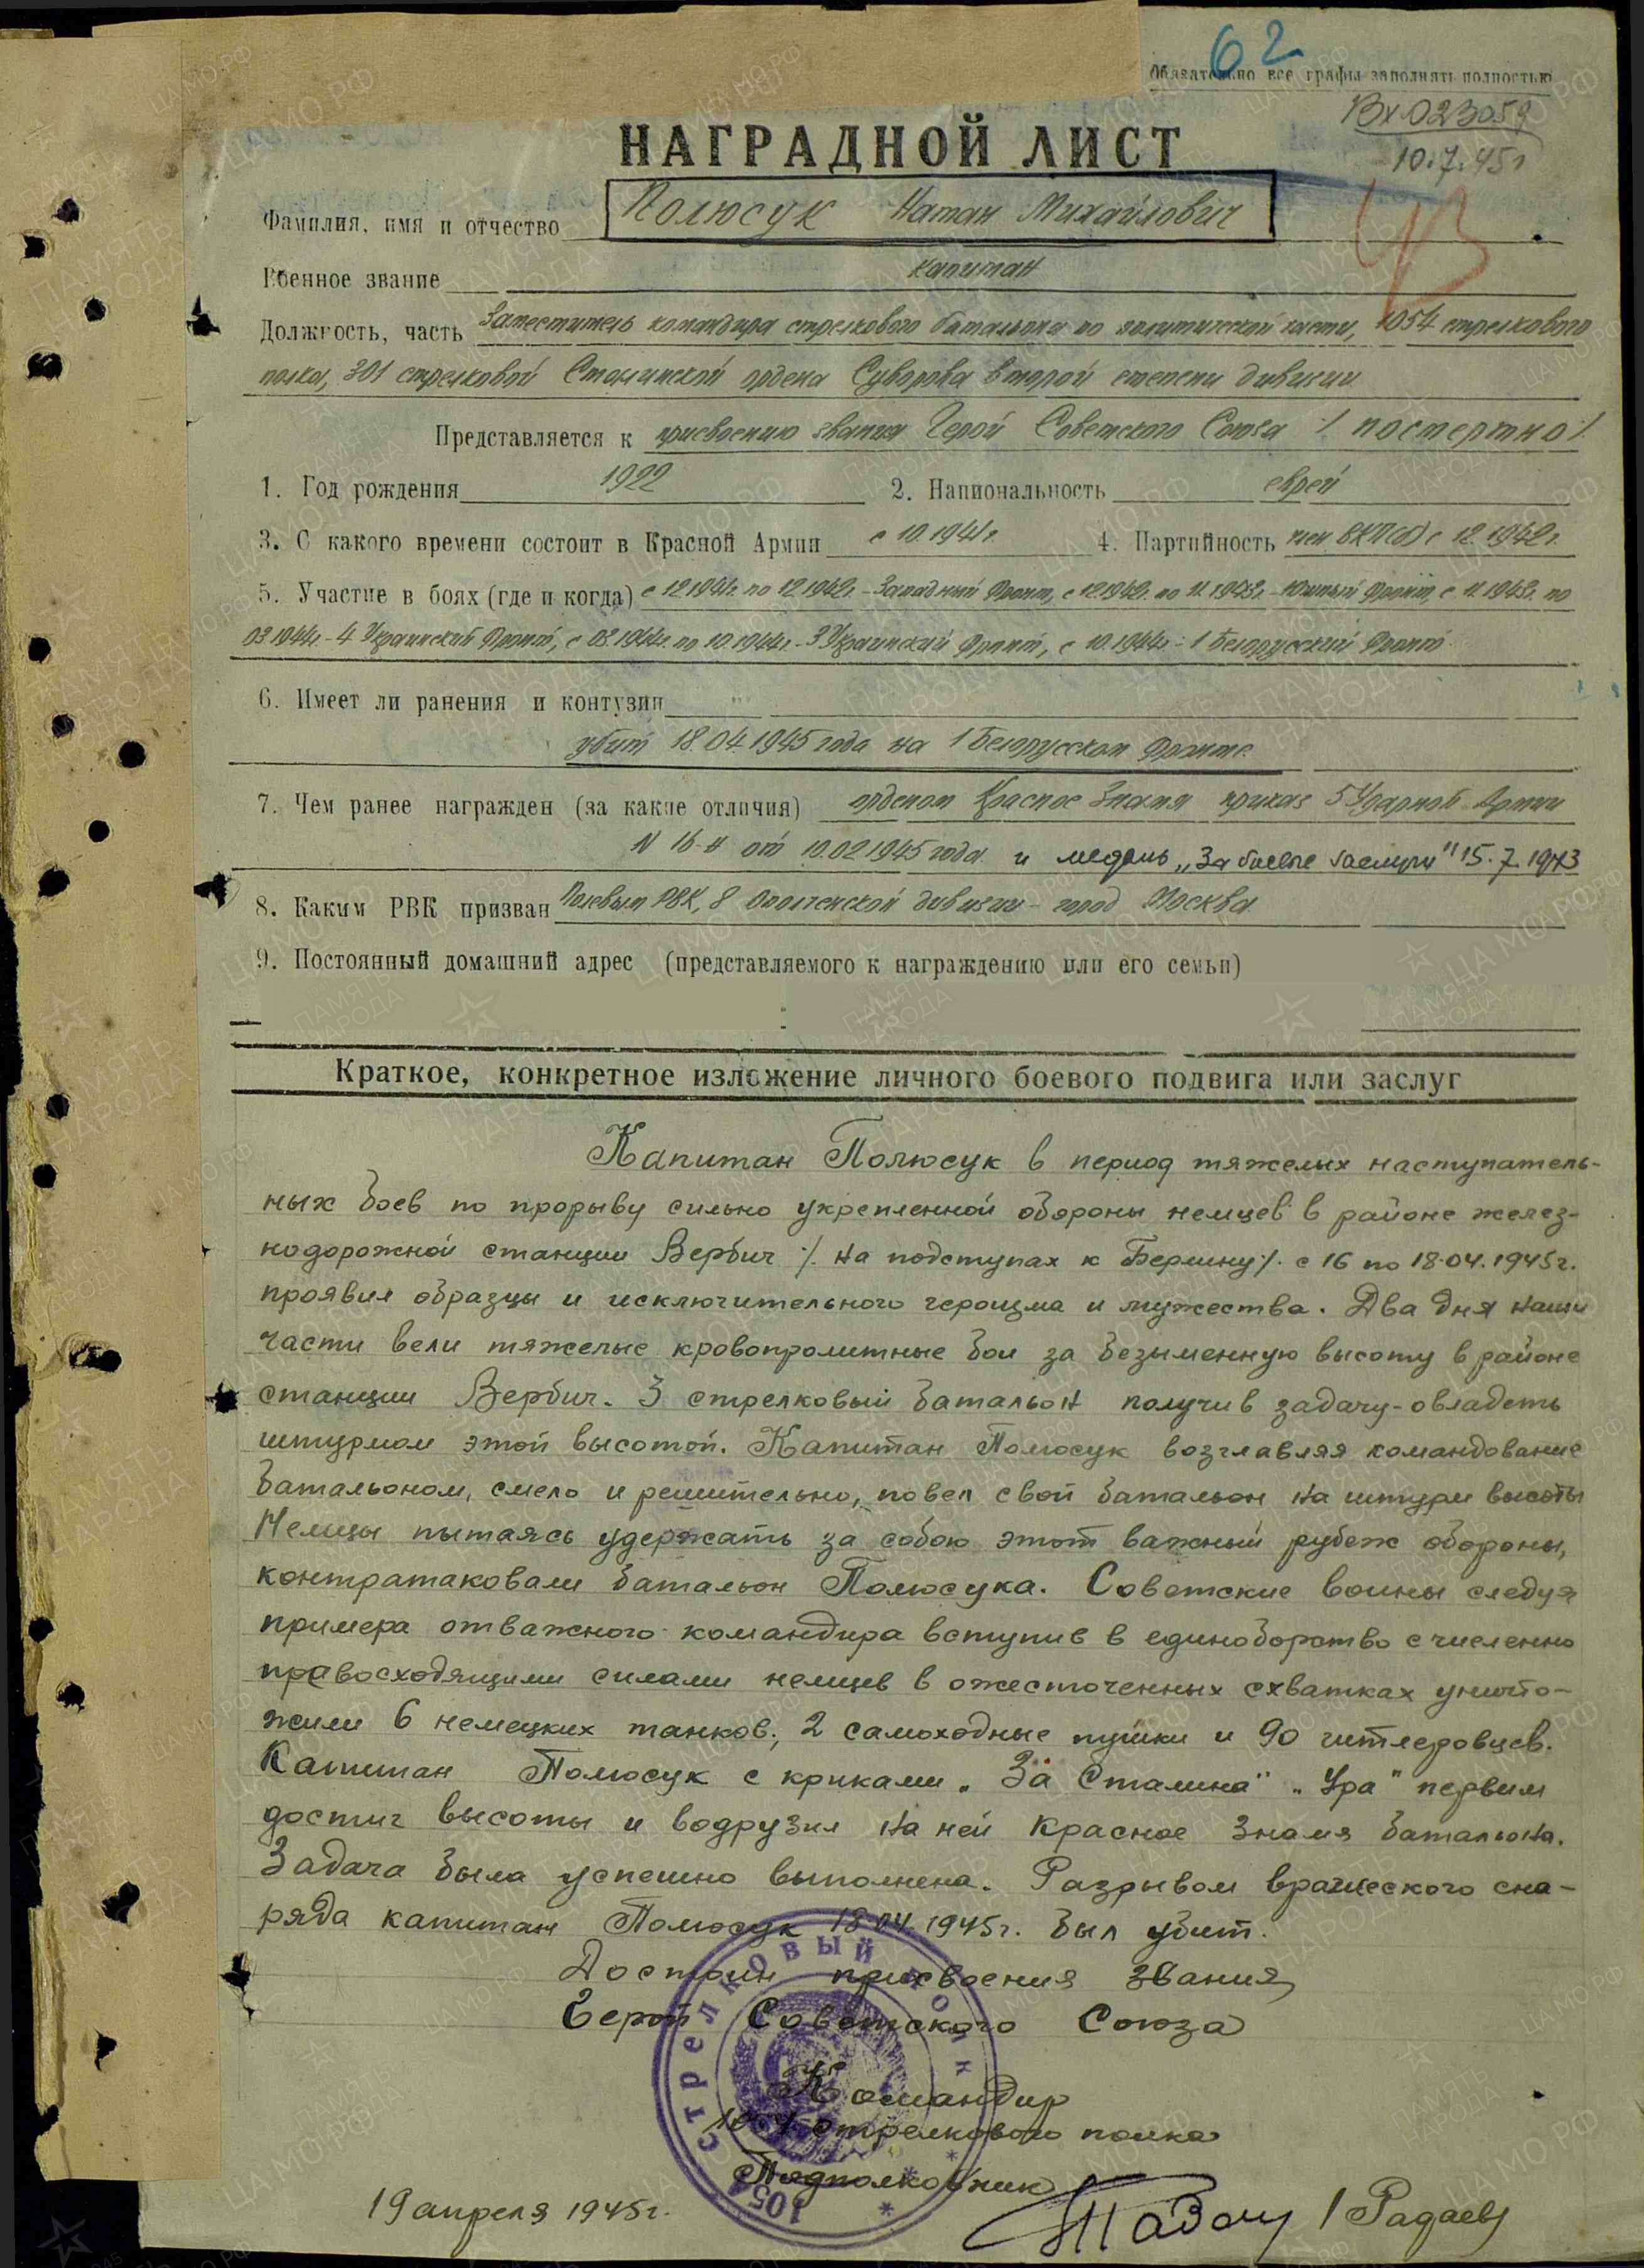 62
Обязательно все графы заполнять полностью
Вх 023059
10.7.45г
НАГРАДНОЙ ЛИСТ
Фамилия, имя и отчество Полюсук Натан Михайлович
Военное звание капитан
Должность, часть Заместитель командира стрелкового батальона по политической части, 1054 стрелкового
полка, 301 стрелковой Сталинской ордена Суворова второй степени дивизии
Представляется к присвоению звания Герой Советского Союза /посмертно/
1. Год рождения 1922 2. Национальность еврей
3. С какого времени состоит в Красной Армии с 10.1941г. 4. Партийность член ВКП(б) с 12.1942г.
5. Участие в боях (где и когда) с 12.1941г. по 12.1942г. - Западный Фронт, с 12.1942г. по 11.1943г. - Южный Фронт, с 11.1943г. по
03.1944г. - 4 Украинский Фронт, с 03.1944г. по 10.1944г. - 3 Украинский Фронт, с 10.1944г. - 1 Белорусский Фронт
6. Имеет ли ранения и контузии
убит 18.04.1945 года на 1 Белорусском Фронте.
7. Чем ранее награжден (за какие отличия) орденом Красное Знамя приказ 5 Ударной Армии
N 16-н от 10.02.1945 года и медаль „За боевые заслуги" 15.7.1943
8. Каким РВК призван Полевым РВК, 8 Ополченской дивизии - город Москва
9. Постоянный домашний адрес (представляемого к награждению или его семьи)
Краткое, конкретное изложение личного боевого подвига или заслуг
Капитан Полюсук в период тяжелых наступатель-
ных боев по прорыву сильно укрепленной обороны немцев в районе желез-
нодорожной станции Вербиг /. на подступах к Берлину/. с 16 по 18.04.1945г.
проявил образцы и исключительного героизма и мужества. Два дня наши
части вели тяжелые кровопролитные бои за безыменную высоту в районе
станции Вербиг. 3 стрелковый батальон получив задачу-овладеть
штурмом этой высотой. Капитан Полюсук возглавляя командование
батальоном, смело и решительно, повел свой батальон на штурм высоты
Немцы пытаясь удержать за собою этот важный рубеж обороны,
контратаковали батальон Полюсука. Советские воины следуя
примера отважного командира вступив в единоборство с численно
превосходящими силами немцев в ожесточенных схватках уничто-
жили 6 немецких танков, 2 самоходные пушки и 90 гитлеровцев.
Капитан Полюсук с криками „За Сталина" „Ура" первым
достиг высоты и водрузил на ней Красное Знамя батальона.
Задача была успешно выполнена. Разрывом вражеского сна-
ряда капитан Полюсук 18.04.1945г. был убит.
Достоин присвоения звания
Герой Советского Союза
1054 СТРЕЛКОВЫЙ ПОЛК
Командир
1054 стрелкового полка
Подполковник
19 апреля 1945г. /Радаев/